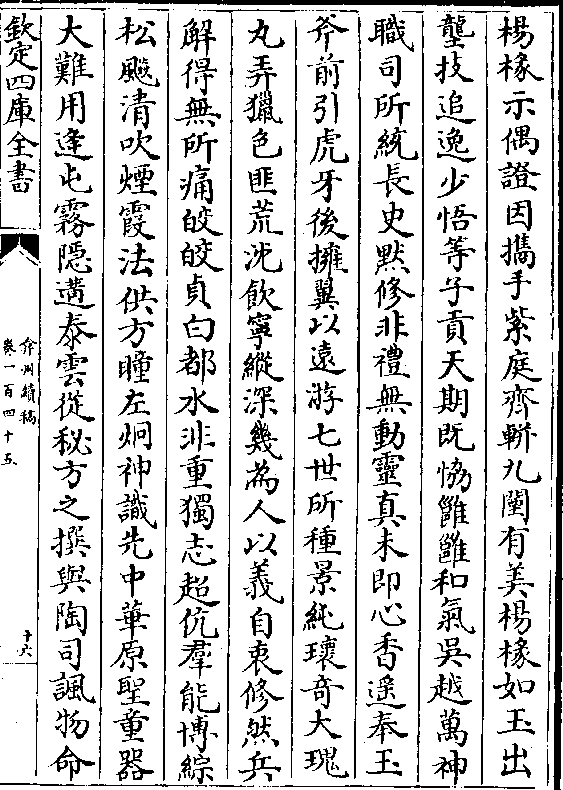 楊椽示偶證因攜手紫庭齊軿九闉有美楊椽如玉出
壟技追逸少悟等子貢天期既恊雝雝和氣吳越萬神
職司所統長史黙修非禮無動靈真未即心香遙奉玉
斧前引虎牙後擁翼以遠游七世所種景純瓌奇大瑰
丸弄獵色匪荒沈飲寧縱深幾為人以義自衷修然兵
解得無所痛皎皎貞白都水非重獨志超伉羣能博綜
松颷清吹煙霞法供方瞳左炯神識先中華原聖童器
大難用逢屯霧隱遘泰雲從秘方之撰與陶司諷物命
欽定四庫全書
弇州續稿
卷一百四十五
十六